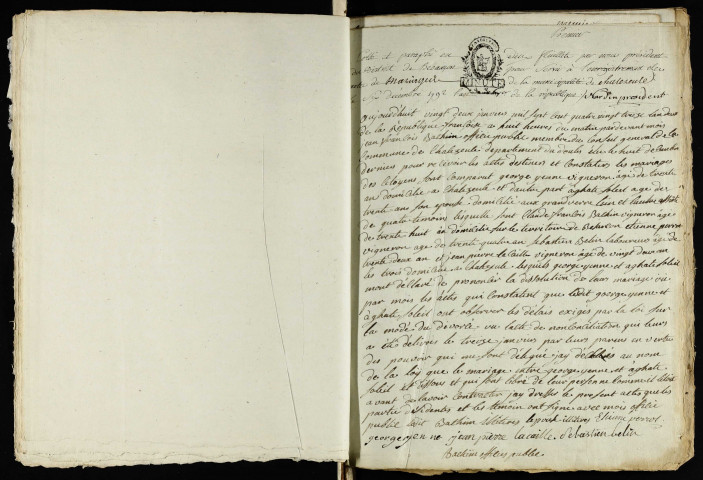 Cotté et paraphé en dixieu feuillets par nous président
du District de Besancon pour servir à l'enregistrement des
actes de Mariages de la municipalité de chalezeule
le 12 décembre 1792 l'an 1er de la république / Nardin president
MINUTE
aujourdhuit vingt deux janvier mil sept cent quatre vingt treize l'an deux
de la Republique francoise a huit heures du matin pardevant mois
jean francois Bathim officie public membre du Conseil general de la
Commune de Chalezeule departement du doubs élue le huit de
dernier pour recevoir les actes destinés et Constater les mariages
des Citoyens sont comparut george yenne vigneron agé de trente
an domicilié a Chalezeule et dautre part aghate soleil agé de
trente ans son epouse domicilié aux grand verre lun et lautre assisté
de quatre temoins lesquels sont Claude francois Bathim vigneron agé
de trente huit an domicilié sur le territoire de Besancon etienne perrot
vigneron age de trente quatre an sebastien Belin laboureur agé de
trente deux an et jean pierre lacaille vigneron agé de vingt deux an
les trois domicilié a Chalezeule lesquels george yenne et aghate soleil
mont déclaré de prononcer la dissolution de leur mariage vu
par mois les actes qui Constatent que ledit george yenne et
aghate soleil ont observer les délais exigés par la loi sur
la mode du divorce vu lacte de nonConciliation qui leurs
a été délivrés le treize janvier par leurs parens en vertus
des pouvoir qui me sont délégué jay déclarés au nom
de la loy que le mariage entre george yenne et aghate
soleil est dissous et qui sont libre de leur personne Comme il étoit
avant de lavoir Contracter jay dressés le present acte que les
partie et les témoin ont signe avec mois officié
public ledit Bathim illitéres lepouse illitéres Etienne perrot
george yenne jean pierre lacaille sebastien belin
Bathim officier public